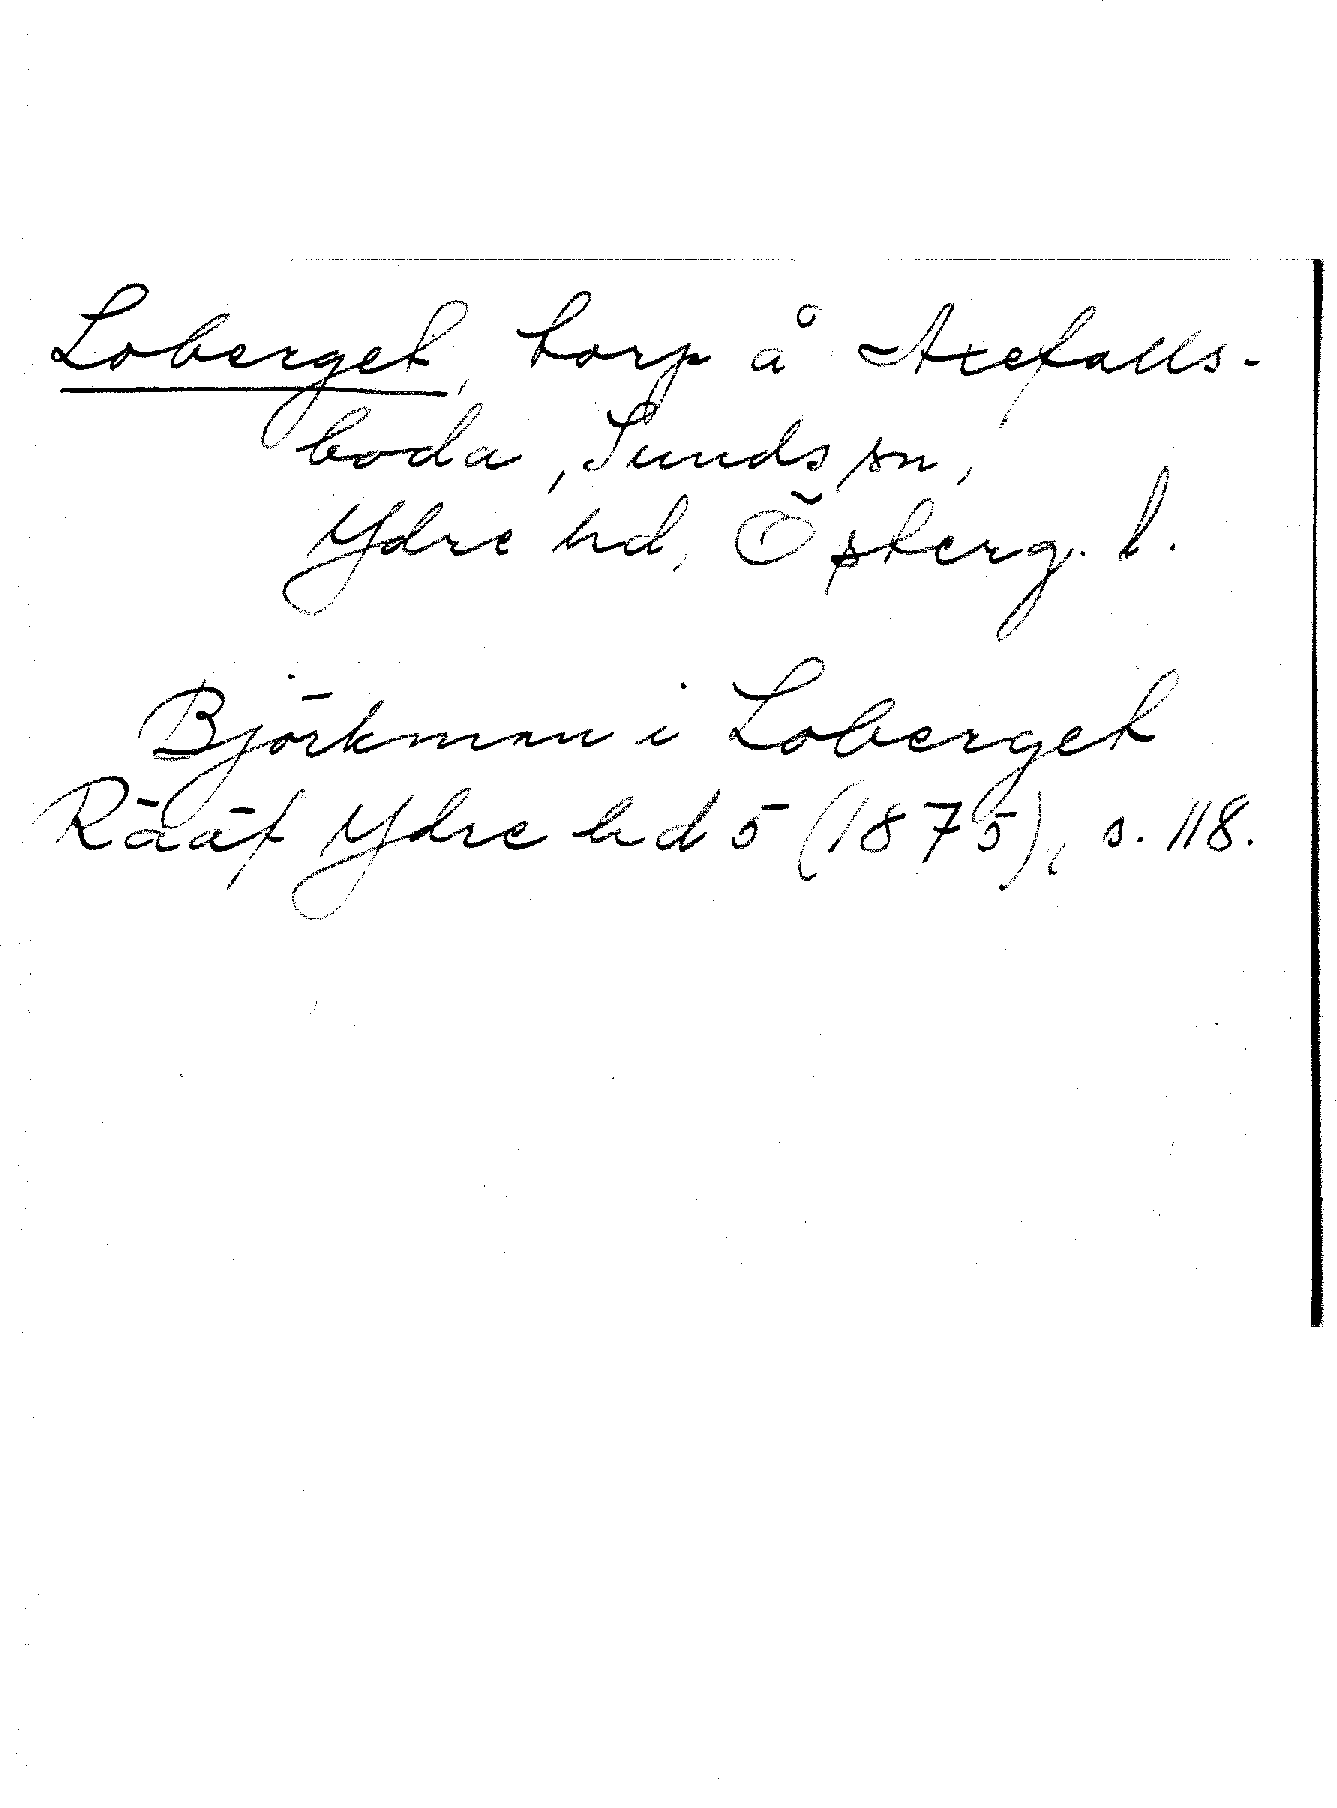 Loberget, torp å Axefalls-
boda, Sunds sn,
Ydre hd, Österg. l.
Björkman i Loberget
Rääf Ydre hd 5 (1875), s. 118.